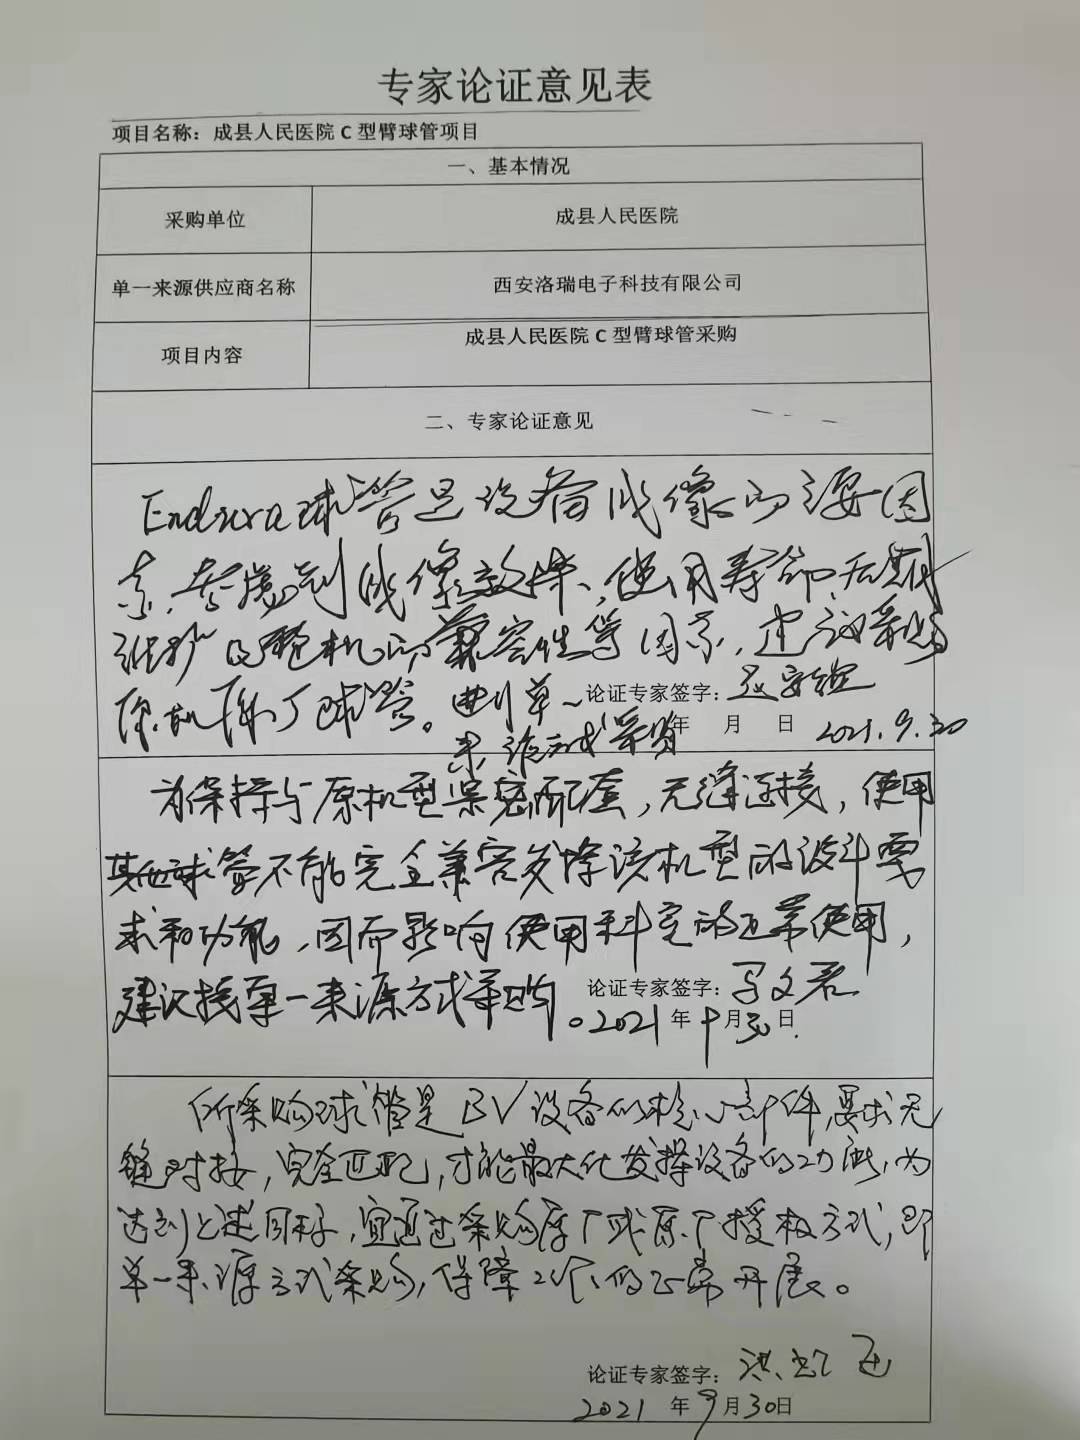 专家论证意见表
项目名称：成县人民医院 C 型臂球管项目
一、基本情况
采购单位
成县人民医院
单一来源供应商名称
西安洛瑞电子科技有限公司
项目内容
成县人民医院 C 型臂球管采购
二、专家论证意见
Endura球管是设备成像的主要因
素，考虑到成像效果、使用寿命、后期
维护及整机的兼容性等因素，建议采购
原机原厂球管。
单一
来源方式采购
论证专家签字：
年 月 日 2021.9.30
为保持与原机型紧密配套，无缝连接，使用
其他球管不能完全兼容发挥该机型的设计要
求和功能，因而影响使用科室的正常使用，
建议按单一来源方式采购。
论证专家签字：马文君
2021年9月30日
所采购球管是BV设备的核心部件，要求无
缝对接，完全匹配，才能最大化发挥设备的功能，为
达到上述目标，宜通过采购原厂或原厂授权方式，即
单一来源方式采购，保障工作的正常开展。
论证专家签字：洪
2021年9月30日